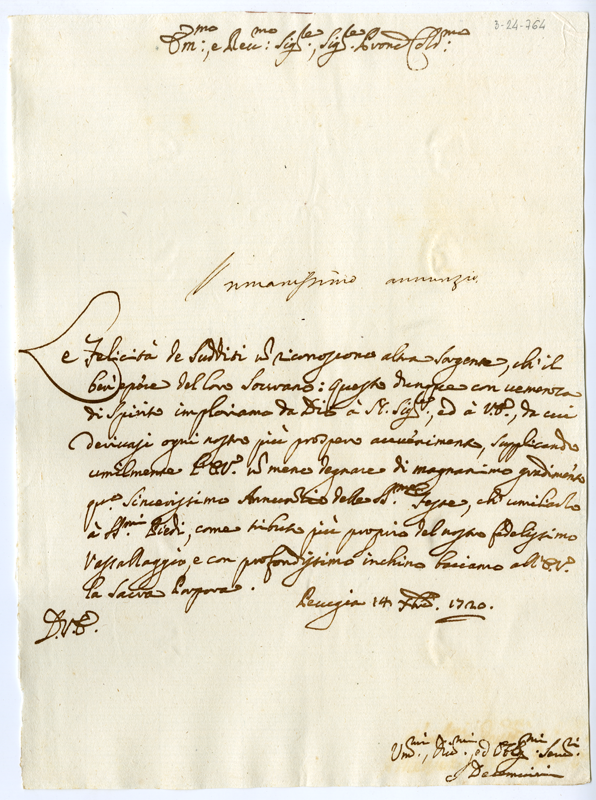 3-24-764
Em:mo, e Rev:mo Sig:re, Sig:re Prone Col:mo
Umanissimo annunzio
Le Felicità de Sudditi ñ riconoscono altra Sorgente, ch'il
ben'essere del loro Sovrano: questo dunque con vemenza
di Spirito imploriamo da Dio à N. Sig.re, ed à V.E., da cui
derivasi ogni nostro più prospero avvenimento, supplicando
umilmente l'E.V. ñ meno degnare di magnanimo gradimento
qto sincerissimo Annunzio delle SS.me Feste, ch' umiliato
à SS.mi Piedi, come tributo più proprio del nostro fedelissimo
Vassallaggio, e con profondissimo inchino baciamo all'E.V.
la Sacra Porpora.
Perugia 14 Xbre. 1720.
D.V.E.
Um:mi, Div:mi, ed Obl:mi Serv:ri
I Decemviri